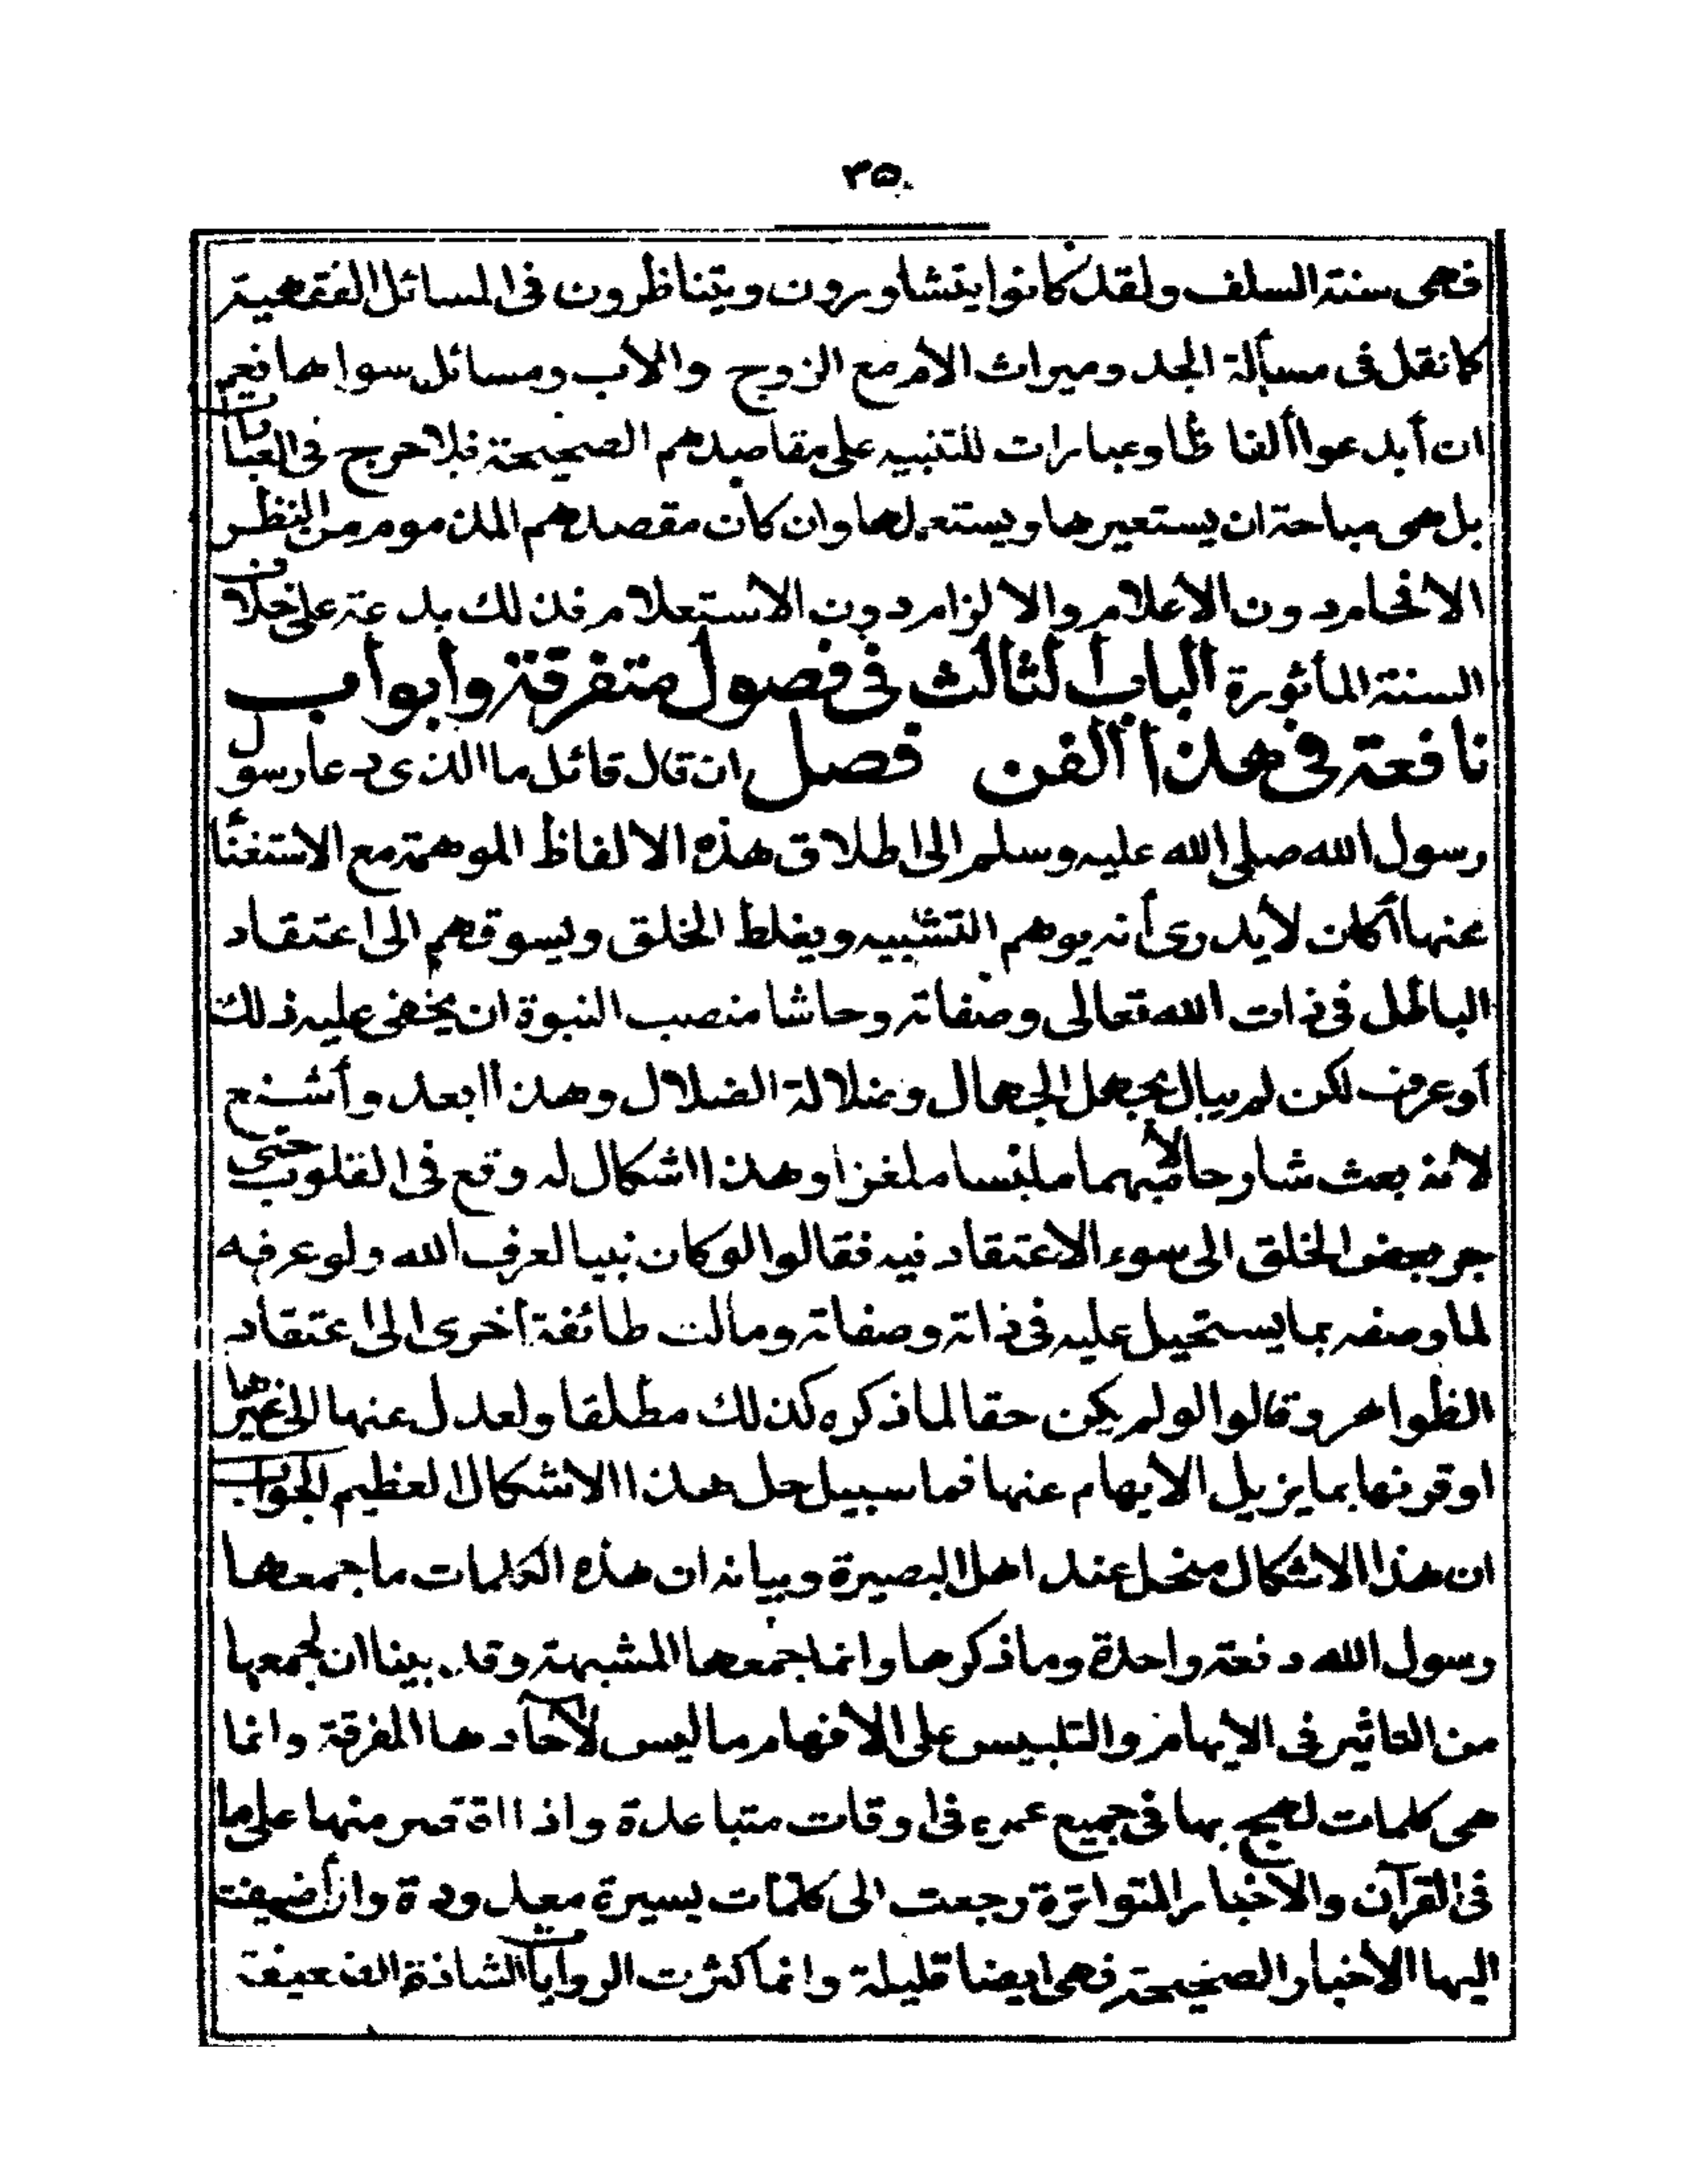 ٣٥
فهى سنة السلف ولقد كانوا يتشاورون ويتناظرون فى المسائل الفقهية
كما نقل فى مسألة الجد وميراث الأم مع الزوج والأب ومسائل سواها نعم
ان أبدعوا ألفاظا وعبارات للتنبيه على مقاصدهم الصحيحة فلا حرج فى العبارات
بل هى مباحة ان يستعيرها ويستعملها وان كان مقصدهم المذموم من النظر
الافحام دون الأعلام والالزام دون الاستعلام فذلك بدعة على خلاف
السنة المأثورة الباب الثالث فى فصول متفرقة وأبواب
نافعة فى هذا الفن فصل ان قال قائل ما الذى دعا رسول
رسول الله صلى الله عليه وسلم الى اطلاق هذه الالفاظ الموهمة مع الاستغناء
عنها أكان لا يدرى أنه يوهم التشبيه ويغلط الخلق ويسوقهم الى اعتقاد
الباطل فى ذات الله تعالى وصفاته وحاشا منصب النبوة ان يخفى عليه ذلك
أو عرف لكن لم يبال بجهل الجهال وضلالة الضلال وهذا ابعد وأشنع
لانه بعث شارحا لا مبهما ملبسا ملغزا وهذا اشكال له وقع فى القلوب حتى
جر بعض الخلق الى سوء الاعتقاد فيه فقالوا لو كان نبيا لعرف الله ولو عرفه
لما وصفه بما يستحيل عليه فى ذاته وصفاته ومالت طائفة اخرى الى اعتقاد
الظواهر وقالوا لو لم يكن حقا لما ذكره كذلك مطلقا ولعدل عنها الى غيرها
او قرنها بما يزيل الايهام عنها فما سبيل حل هذا الاشكال العظيم الجواب
ان هذا الاشكال منحل عند اهل البصيرة وبيانه ان هذه الكلمات ما جمعها
رسول الله دفعة واحدة وما ذكرها وانما جمعها المشبهة وقد بينا ان لجمعها
من التاثير فى الايهام والتلبيس على الافهام ما ليس لآحادها المفرقة وانما
هى كلمات لهج بها فى جميع عمره فى اوقات متباعدة واذا اقتصر منها على ما
فى القرآن والاخبار المتواترة رجعت الى كلمات يسيرة معدودة وان أضيفت
اليها الأخبار الصحيحة فهى ايضا قليلة وانما كثرت الروايات الشاذة الضعيفة